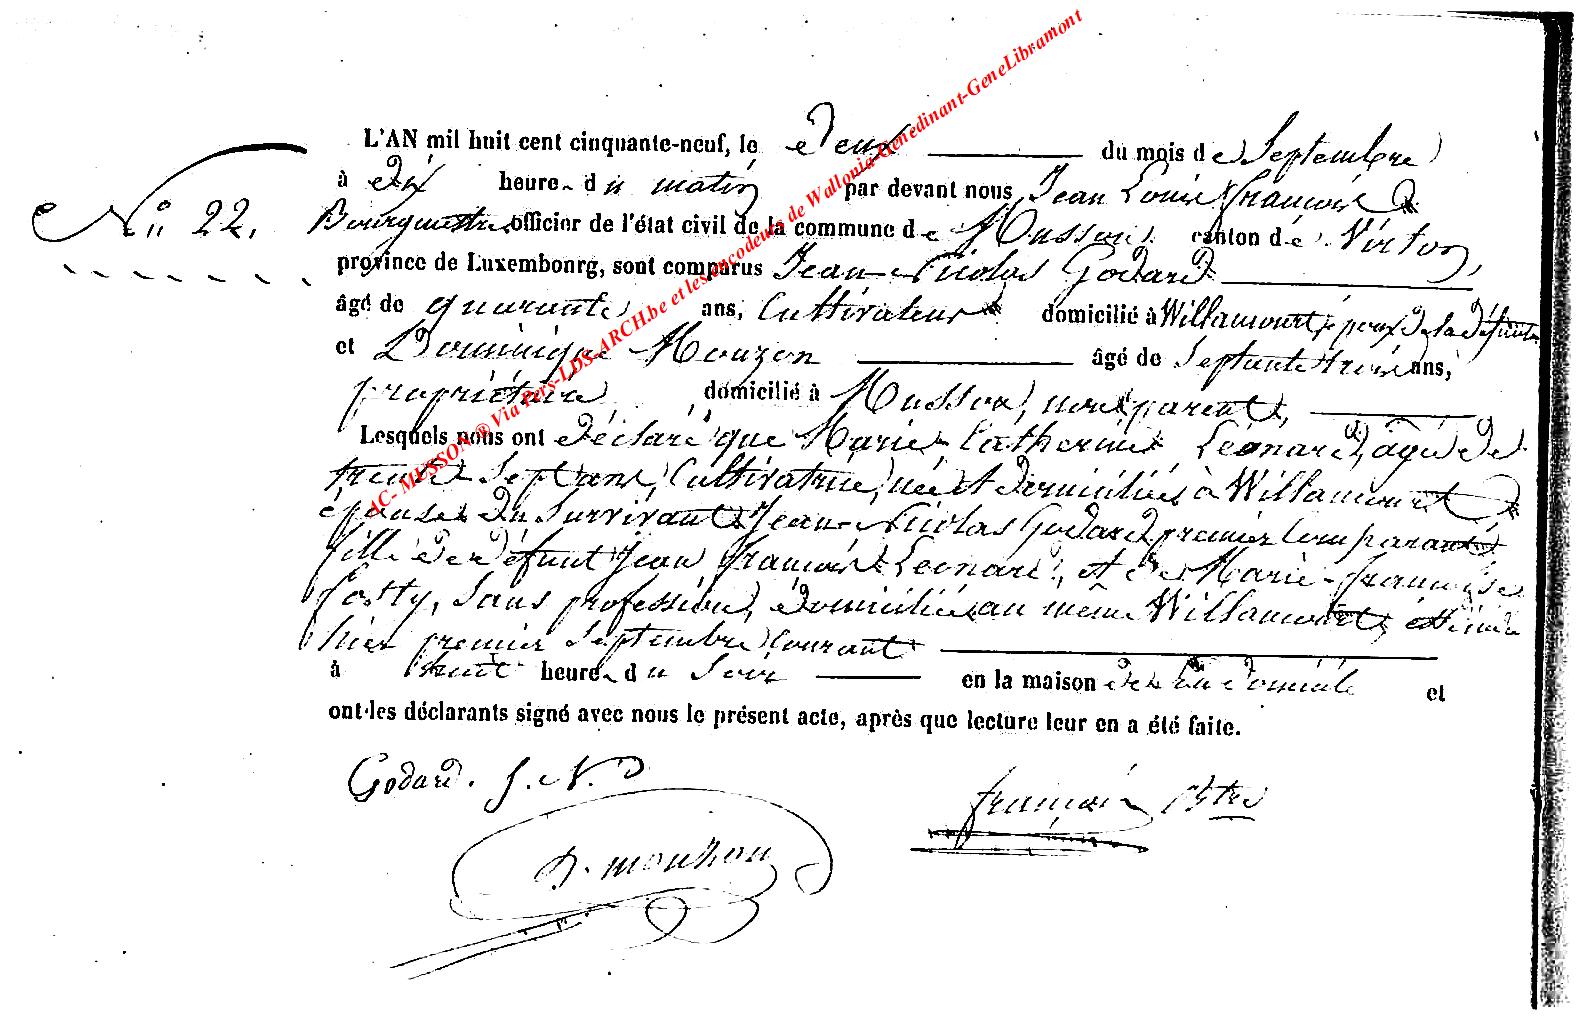 AC- MUSSON ® Via Pers-LDS-ARCH.be et les encodeurs de Wallonia-Genedinant-GeneLibramont
L'AN mil huit cent cinquante-neuf, le Deux du mois de Septembre
à Dix heures du matin par devant nous, Jean Louis François
N° 22. Bourgmestre officier de l'état civil de la commune de Musson, canton de Virton,
province de Luxembourg, sont comparus Jean-Nicolas Godard
âgé de quarante ans, Cultivateur domicilié à Willancourt, époux de la défunte
et Dominique Mouzon âgé de Septante trois ans,
propriétaire domicilié à Musson, non parent,
Lesquels nous ont Déclaré que Marie Catherine Léonard, âgée de
trente Sept ans, Cultivatrice, née et domiciliée à Willancourt
épouse du Survivant Jean-Nicolas Godard premier Comparant,
fille de défunt Jean François Léonard, et de Marie-Françoise
Costy, Sans profession, domiciliée au même Willancourt, est décédée
hier premier Septembre Courant
à huit heures du Soir en la maison de Son domicile et
ont les déclarants signé avec nous le présent acte, après que lecture leur en a été faite.
Godard. J. N.
françois Bstre
D. mouzon